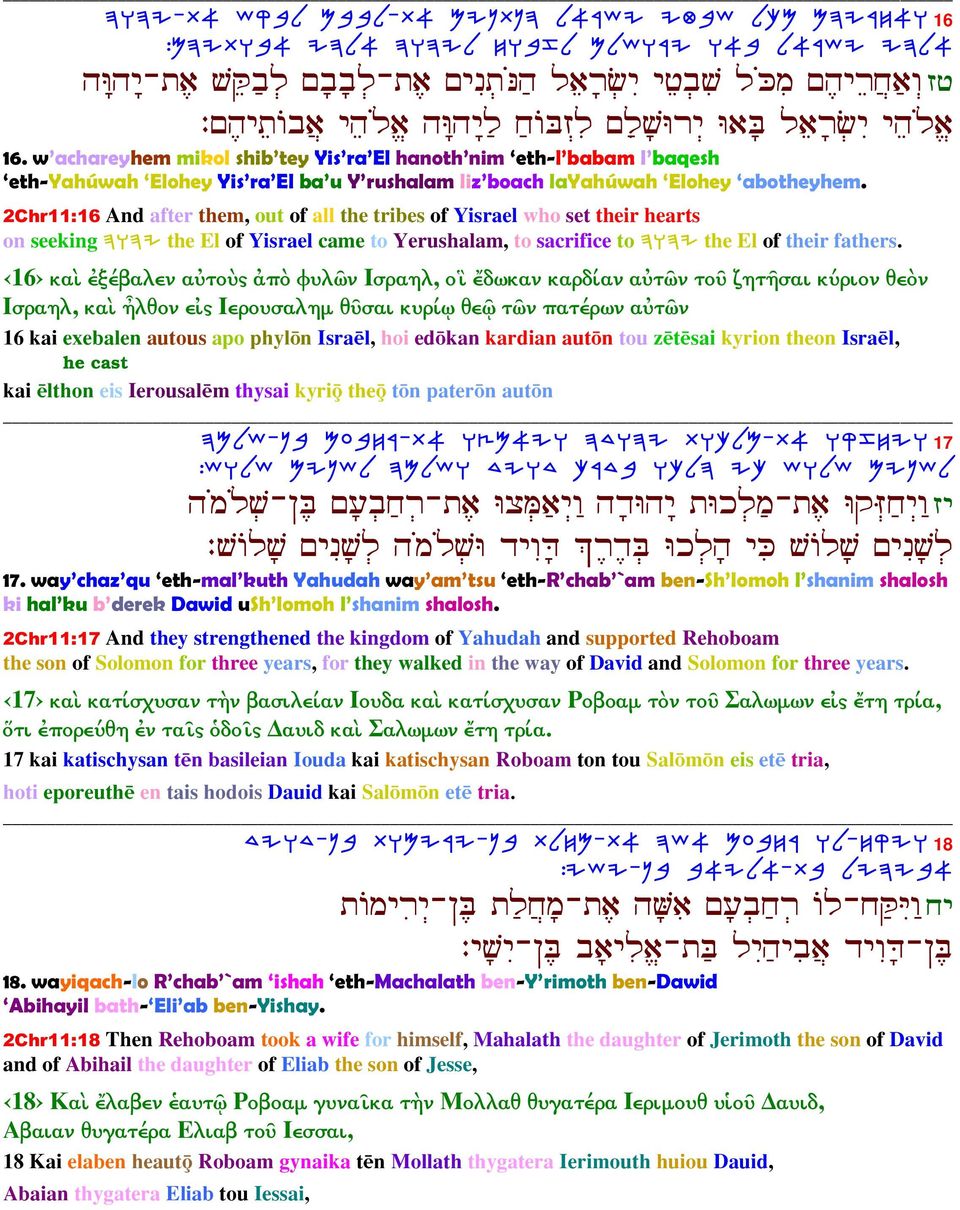 16 𐤅𐤀𐤇𐤓𐤉𐤄𐤌 𐤌𐤊𐤋 𐤔𐤁𐤈𐤉 𐤉𐤔𐤓𐤀𐤋 𐤄𐤍𐤕𐤍𐤉𐤌 𐤀𐤕-𐤋𐤁𐤁𐤌 𐤋𐤁𐤒𐤔 𐤀𐤕-𐤉𐤄𐤅𐤄
𐤀𐤋𐤄𐤉 𐤉𐤔𐤓𐤀𐤋 𐤁𐤀𐤅 𐤉𐤓𐤅𐤔𐤋𐤌 𐤋𐤆𐤁𐤅𐤇 𐤋𐤉𐤄𐤅𐤄 𐤀𐤋𐤄𐤉 𐤀𐤁𐤅𐤕𐤉𐤄𐤌:
טז וְאַחֲרֵיהֶם מִכֹּל שִׁבְטֵי יִשְׂרָאֵל הַנֹּתְנִים אֶת־לְבָבָם לְבַקֵּשׁ אֶת־יָהוָּה
אֱלֹהֵי יִשְׂרָאֵל בָּאוּ יְרוּשָׁלַם לִזְבּוֹחַ לַיָהוָּה אֱלֹהֵי אֲבוֹתֵיהֶם:
16. w’achareyhem mikol shib’tey Yis’ra’El hanoth’nim ‘eth-l’babam l’baqesh
‘eth-Yahúwah ‘Elohey Yis’ra’El ba’u Y’rushalam liz’boach laYahúwah ‘Elohey ‘abotheyhem.
2Chr11:16 And after them, out of all the tribes of Yisrael who set their hearts
on seeking 𐤉𐤄𐤅𐤄 the El of Yisrael came to Yerushalam, to sacrifice to 𐤉𐤄𐤅𐤄 the El of their fathers.
‹16› καὶ ἐξέβαλεν αὐτοὺς ἀπὸ φυλῶν Ισραηλ, οἳ ἔδωκαν καρδίαν αὐτῶν τοῦ ζητῆσαι κύριον θεὸν
Ισραηλ, καὶ ἦλθον εἰς Ιερουσαλημ θῦσαι κυρίῳ θεῷ τῶν πατέρων αὐτῶν
16 kai exebalen autous apo phylōn Israēl, hoi edōkan kardian autōn tou zētēsai kyrion theon Israēl,
he cast
kai ēlthon eis Ierousalēm thysai kyriō̧ theō̧ tōn paterōn autōn
17 𐤅𐤉𐤇𐤆𐤒𐤅 𐤀𐤕-𐤌𐤋𐤊𐤅𐤕 𐤉𐤄𐤅𐤃𐤄 𐤅𐤉𐤀𐤌𐤑𐤅 𐤀𐤕-𐤓𐤇𐤁𐤏𐤌 𐤁𐤍-𐤔𐤋𐤌𐤄
𐤋𐤔𐤍𐤉𐤌 𐤔𐤋𐤅𐤔 𐤊𐤉 𐤄𐤋𐤊𐤅 𐤁𐤃𐤓𐤊 𐤃𐤅𐤉𐤃 𐤅𐤔𐤋𐤌𐤄 𐤋𐤔𐤍𐤉𐤌 𐤔𐤋𐤅𐤔:
יז וַיְחַזְּקוּ אֶת־מַלְכוּת יָהוּדָה וַיְאַמְּצוּ אֶת־רְחַבְעָם בֶּן־שְׁלֹמֹה
לְשָׁנִים שָׁלוֹשׁ כִּי הָלְכוּ בְּדֶרֶךְ דָּוִיד וּשְׁלֹמֹה לְשָׁנִים שָׁלוֹשׁ:
17. way’chaz’qu ‘eth-mal’kuth Yahudah way’am’tsu ‘eth-R’chab’`am ben-Sh’lomoh l’shanim shalosh
ki hal’ku b’derek Dawid uSh’lomoh l’shanim shalosh.
2Chr11:17 And they strengthened the kingdom of Yahudah and supported Rehoboam
the son of Solomon for three years, for they walked in the way of David and Solomon for three years.
‹17› καὶ κατίσχυσαν τὴν βασιλείαν Ιουδα καὶ κατίσχυσαν Ροβοαμ τὸν τοῦ Σαλωμων εἰς ἔτη τρία,
ὅτι ἐπορεύθη ἐν ταῖς ὁδοῖς Δαυιδ καὶ Σαλωμων ἔτη τρία.
17 kai katischysan tēn basileian Iouda kai katischysan Roboam ton tou Salōmōn eis etē tria,
hoti eporeuthē en tais hodois Dauid kai Salōmōn etē tria.
18 𐤅𐤉𐤒𐤇-𐤋𐤅 𐤓𐤇𐤁𐤏𐤌 𐤀𐤔𐤄 𐤀𐤕-𐤌𐤇𐤋𐤕 𐤁𐤍-𐤉𐤓𐤉𐤌𐤅𐤕 𐤁𐤍-𐤃𐤅𐤉𐤃
𐤀𐤁𐤉𐤄𐤉𐤋 𐤁𐤕-𐤀𐤋𐤉𐤀𐤁 𐤁𐤍-𐤉𐤔𐤉:
יח וַיִּקַּח־לוֹ רְחַבְעָם אִשָּׁה אֶת־מָחֲלַת בֶּן־יְרִימוֹת
בֶּן־דָּוִיד אֲבִיהַיִל בַּת־אֱלִיאָב בֶּן־יִשָׁי:
18. wayiqach-lo R’chab’`am ‘ishah ‘eth-Machalath ben-Y’rimoth ben-Dawid
‘Abihayil bath-‘Eli’ab ben-Yishay.
2Chr11:18 Then Rehoboam took a wife for himself, Mahalath the daughter of Jerimoth the son of David
and of Abihail the daughter of Eliab the son of Jesse,
‹18› Καὶ ἔλαβεν ἑαυτῷ Ροβοαμ γυναῖκα τὴν Μολλαθ θυγατέρα Ιεριμουθ υἱοῦ Δαυιδ,
Αβαιαν θυγατέρα Ελιαβ τοῦ Ιεσσαι,
18 Kai elaben heautō̧ Roboam gynaika tēn Mollath thygatera Ierimouth huiou Dauid,
Abaian thygatera Eliab tou Iessai,